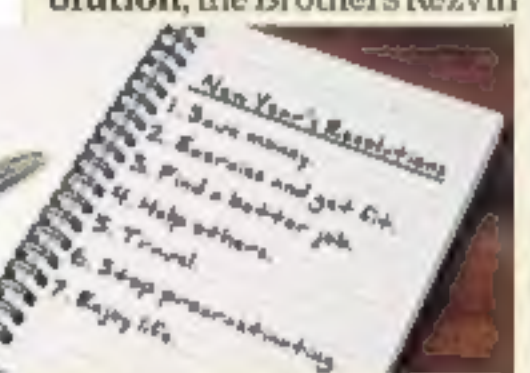 olution, the Brothers Rezvin
New Year's Resolutions
1. Save money
2. Exercise and get fit.
3. Find a better job.
4. Help others.
5. Travel
6. Stop procrastinating
7. Enjoy life